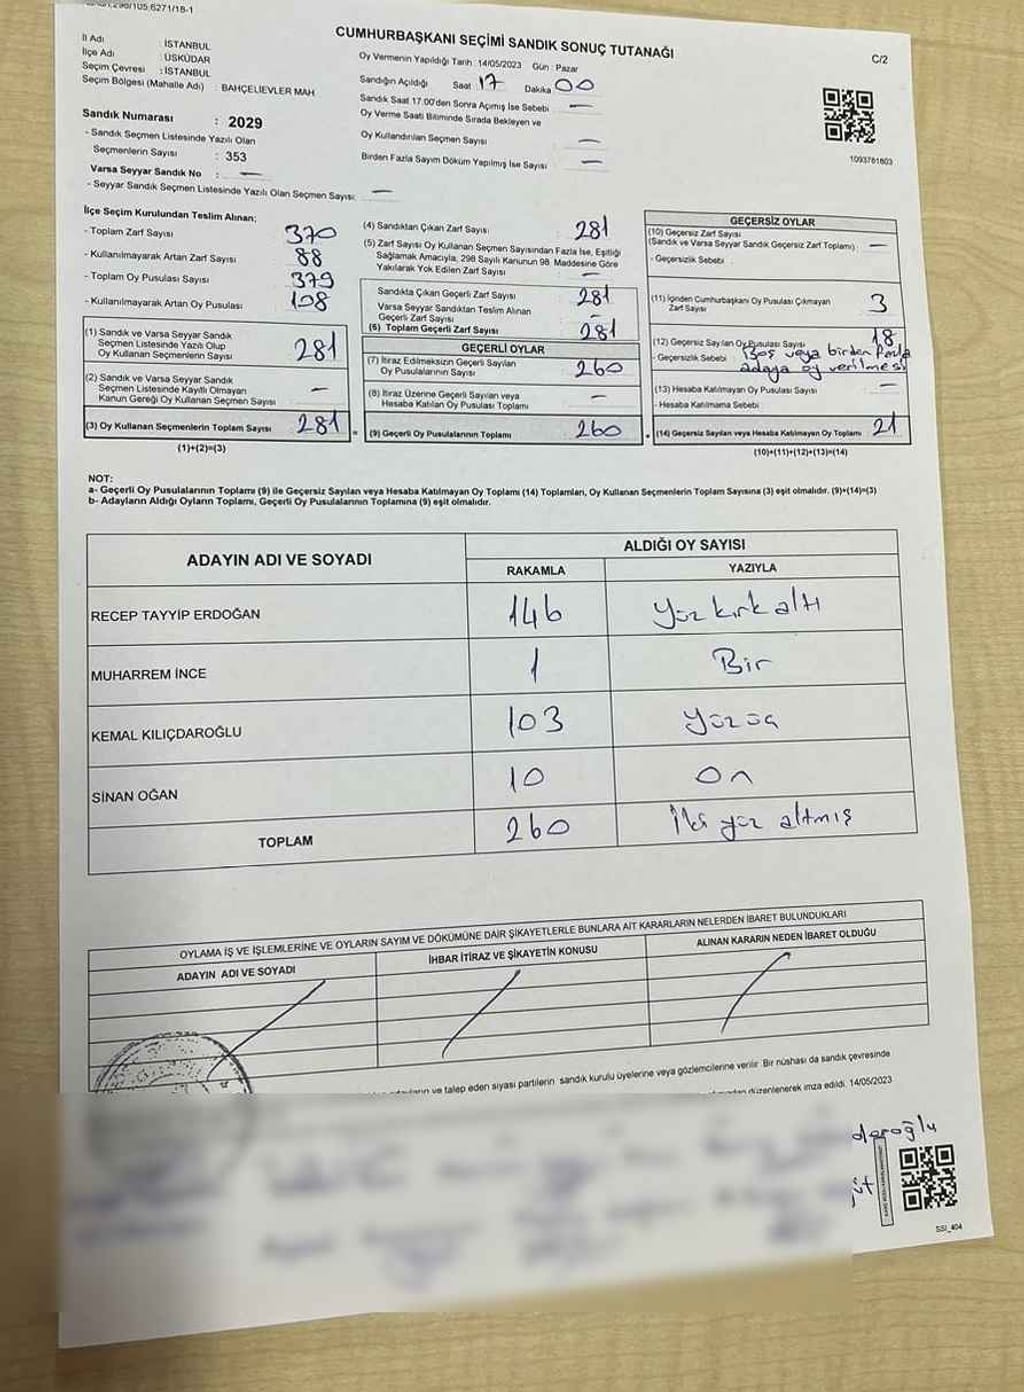 CUMHURBAŞKANI SEÇİMİ SANDIK SONUÇ TUTANAĞI
C/2
İl Adı : İSTANBUL
İlçe Adı : ÜSKÜDAR
Seçim Çevresi : İSTANBUL
Seçim Bölgesi (Mahalle Adı) : BAHÇELİEVLER MAH
Sandık Numarası : 2029
- Sandık Seçmen Listesinde Yazılı Olan
Seçmenlerin Sayısı : 353
Varsa Seyyar Sandık No : —
- Seyyar Sandık Seçmen Listesinde Yazılı Olan Seçmen Sayısı: —
Oy Vermenin Yapıldığı Tarih : 14/05/2023 Gün : Pazar
Sandığın Açıldığı Saat 17 Dakika 00
Sandık Saat 17.00'den Sonra Açımış İse Sebebi —
Oy Verme Saati Bitiminde Sırada Bekleyen ve
Oy Kullandırılan Seçmen Sayısı —
Birden Fazla Sayım Döküm Yapılmış İse Sayısı —
1093761603
İlçe Seçim Kurulundan Teslim Alınan;
- Toplam Zarf Sayısı 370
- Kullanılmayarak Artan Zarf Sayısı 88
- Toplam Oy Pusulası Sayısı 379
- Kullanılmayarak Artan Oy Pusulası 108
(1) Sandık ve Varsa Seyyar Sandık
Seçmen Listesinde Yazılı Olup
Oy Kullanan Seçmenlerin Sayısı 281
(2) Sandık ve Varsa Seyyar Sandık
Seçmen Listesinde Kayıtlı Olmayan
Kanun Gereği Oy Kullanan Seçmen Sayısı —
(3) Oy Kullanan Seçmenlerin Toplam Sayısı 281
(1)+(2)=(3)
(4) Sandıktan Çıkan Zarf Sayısı 281
(5) Zarf Sayısı Oy Kullanan Seçmen Sayısından Fazla İse, Eşitliği
Sağlamak Amacıyla, 298 Sayılı Kanunun 98. Maddesine Göre
Yakılarak Yok Edilen Zarf Sayısı —
Sandıkta Çıkan Geçerli Zarf Sayısı 281
Varsa Seyyar Sandıktan Teslim Alınan
Geçerli Zarf Sayısı —
(6) Toplam Geçerli Zarf Sayısı 281
GEÇERLİ OYLAR
(7) İtiraz Edilmeksizin Geçerli Sayılan
Oy Pusulalarının Sayısı 260
(8) İtiraz Üzerine Geçerli Sayılan veya
Hesaba Katılan Oy Pusulası Toplamı —
(9) Geçerli Oy Pusulalarının Toplamı 260
GEÇERSİZ OYLAR
(10) Geçersiz Zarf Sayısı
(Sandık ve Varsa Seyyar Sandık Geçersiz Zarf Toplamı) —
- Geçersizlik Sebebi :
(11) İçinden Cumhurbaşkanı Oy Pusulası Çıkmayan
Zarf Sayısı 3
(12) Geçersiz Sayılan Oy Pusulası Sayısı 18
- Geçersizlik Sebebi Boş veya birden fazla
adaya oy verilmesi
(13) Hesaba Katılmayan Oy Pusulası Sayısı —
- Hesaba Katılmama Sebebi
(14) Geçersiz Sayılan veya Hesaba Katılmayan Oy Toplamı 21
(10)+(11)+(12)+(13)=(14)
NOT:
a- Geçerli Oy Pusulalarının Toplamı (9) ile Geçersiz Sayılan veya Hesaba Katılmayan Oy Toplamı (14) Toplamları, Oy Kullanan Seçmenlerin Toplam Sayısına (3) eşit olmalıdır. (9)+(14)=(3)
b- Adayların Aldığı Oyların Toplamı, Geçerli Oy Pusulalarının Toplamına (9) eşit olmalıdır.
ADAYIN ADI VE SOYADI ALDIĞI OY SAYISI
RAKAMLA YAZIYLA
RECEP TAYYİP ERDOĞAN 146 Yüz kırk altı
MUHARREM İNCE 1 Bir
KEMAL KILIÇDAROĞLU 103 Yüz üç
SİNAN OĞAN 10 On
TOPLAM 260 İki yüz altmış
OYLAMA İŞ VE İŞLEMLERİNE VE OYLARIN SAYIM VE DÖKÜMÜNE DAİR ŞİKAYETLERLE BUNLARA AİT KARARLARIN NELERDEN İBARET BULUNDUKLARI
ADAYIN ADI VE SOYADI İHBAR İTİRAZ VE ŞİKAYETİN KONUSU ALINAN KARARIN NEDEN İBARET OLDUĞU
ve talep eden siyasi partilerin sandık kurulu üyelerine veya gözlemcilerine verilir. Bir nüshası da sandık çevresinde
düzenlenerek imza edildi. 14/05/2023
daroğlu
SSI_404